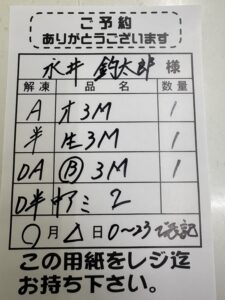 ご予約
ありがとうございます
永井 釣太郎 様
解凍 品名 数量
A オ3M 1
半 生3M 1
DA Ⓑ3M 1
D半 中アミ 2
○月△日 0〜23で表記
この用紙をレジ迄
お持ち下さい。